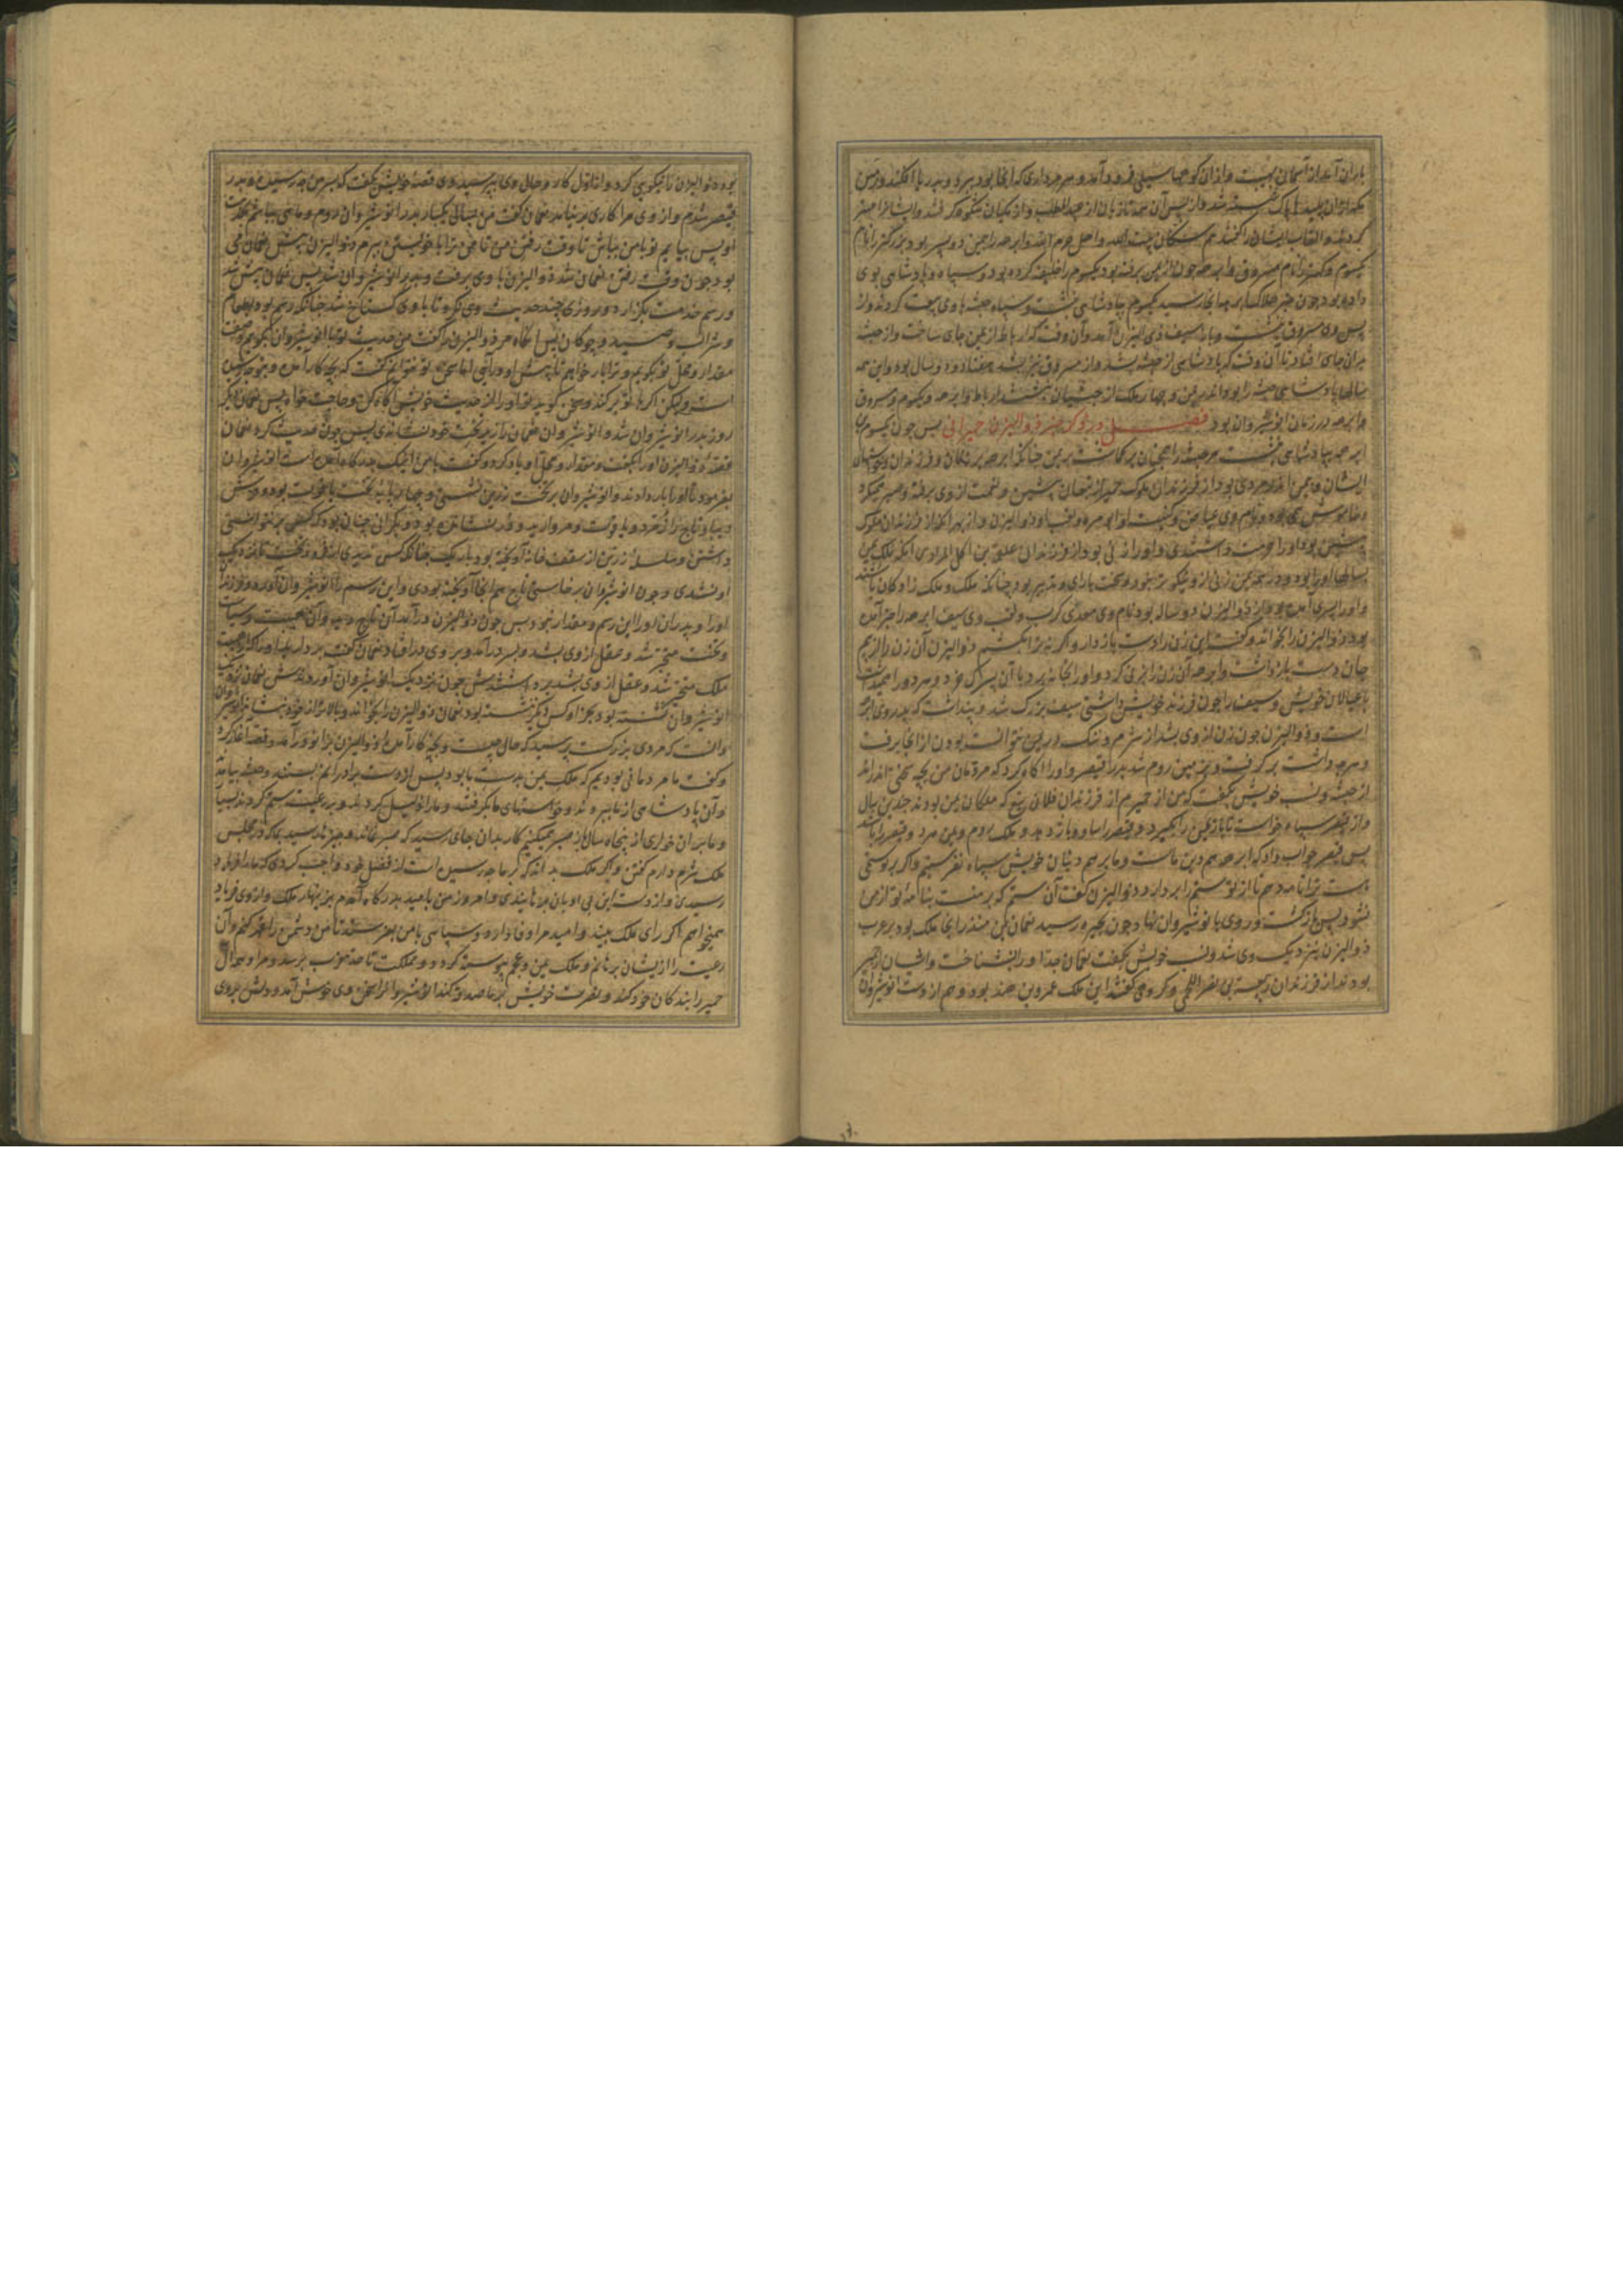 باران آمد از آسمان بهیبت و از ان کوهها سیلی فرود آمد و هر مرداری که انجا بود ببرد و بدریا افکند و زمین
مکه از ان پلیدیها پاک شسته شد و از پس آن همه تازیان از عبدالمطلب و از مکیان شکوه گرفتند و ایشانرا
کردند و القاب ایشان گفتند هم سکان بیت الله و اهل حرم الله و ابرهه را به یمن دو پسر بود بزرگتر را نام
یکسوم و کهتر را نام مسروق و ابرهه چون از یمن برفته بود یکسوم را خلیفه کرده بود و سپاه و پادشاهی بوی
داده بود چون خبر هلاک ابرهه انجا رسید یکسوم بپادشاهی بنشست و سپاه حبشه با وی بیعت کردند و از
پس وی مسروق بنشست و باز سیف ذی الیزن آمد و آن وقت که ارباط از یمن جای ساخت و از حبشه
برای جای افتاد تا آن وقت که پادشاهی از حبشه بشد و از مسروق نیز بشد هفتاد و دو سال بود و این همه
سالها پادشاهی حبشه را بود اندر یمن و چهار ملک از حبشیان بنشستند ارباط و ابرهه و یکسوم و مسروق
و ابرهه در زمان انوشیروان بود فصل در ذکر خبر ذوالیزن حمیرانی پس چون یکسوم بن
ابرهه بپادشاهی بنشست مر حبشه را همچنان بر کماشت بر یمن چنانکه ابرهه بر زنان و فرزندان و
ایشان و بیمن اندر مردی بود از فرزندان ملوک حمیر از تبعان پیشین و نعمت از وی برفته و صبر همیکرد
و خاموش همی بود و نام وی عیاض و کنیت او ابو مره و لقب او ذوالیزن و از بهر انکه از فرزندان ملوک
پیشین بود او را حرمت داشتندی و او را زنی بود از فرزندان علقمه بن اکل المرار آنکه ملک یمن
سالها او را بود و در همه یمن زنی از و نیکوتر نبود و سخت با رای و تدبیر بود چنانکه ملک و ملک زادکان باشند
و او را پسری آمده بود از ذوالیزن دو ساله بود نام وی معدی کرب و لقب وی سیف ابرهه را خبر آمده
بود ذوالیزن را بخواند و گفت این زن را دست بازدار و اگرنه ترا بکشم ذوالیزن آن زن را از بیم
جان دست بازداشت و ابرهه آن زن را بزنی کرد و او را بخانه برد با آن پسرک خرد و هر دو را همیداشت
با عیالان خویش و سیف را چون فرزند خویش داشتی سیف بزرگ شد و پنداشت که پدر وی ابرهه
است و ذوالیزن چون زن از وی بشد از شرم و ننک در یمن نتوانست بودن از انجا برفت
و هرچه داشت برگرفت و بزمین روم شد بدر قیصر و او را آگاه کرد که مردمان من بچه سختی اندراند
از حبشه و نسب خویش بگفت که من از حمیرم از فرزندان فلان تبع که ملکان یمن بودند چندین سال
و از قیصر سپاه خواست تا باز یمن را بگیرد و قیصر را ساو و باژ دهد و ملک روم و یمن هر دو قیصر را باشد
پس قیصر جواب داد که ابرهه هم دین ماست و ما بر هم دینان خویش سپاه نفرستیم و اگر بر تو ستمی
است ترا نامه دهم تا از تو ستم را بردارد ذوالیزن گفت آن ستم که بر منست بنامه تو از من
نشود پس بازگشت و روی بانوشیروان نهاد چون بحیره رسید نعمان بن منذر انجا ملک بود بر عرب
ذوالیزن بنزدیک وی شد و نسب خویش بگفت نعمان جد او را بشناخت و ایشان از حمیر
بودند از فرزندان ربیعة بن نصر اللخمی و گروهی گفتند این ملک عمرو بن هند بود و هم از دست انوشیروان
بود ذوالیزن را نیکویی کرد و از اول کار و حال وی بپرسید وی قصه خویش بگفت که بر من چه رسید و بدر
قیصر شدم و از وی مرا کاری برنیامد نعمان گفت من بسالی یکبار بدر انوشیروان روم و ماهی
او پس بیایم تو با من بباش تا وقت رفتن من تا من ترا با خویشتن ببرم ذوالیزن پیش نعمان همی
بود چون وقت رفتن نعمان شد ذوالیزن با وی برفت و بدر انوشیروان شد پس نعمان پیش شد
و رسم خدمت بگزارد و روزی چند حدیث وی نکرد تا با وی گستاخ شد چنانکه رسم بود بطعام
و شراب و صید و چوکان پس انگاه مر ذوالیزن را گفت من حدیث تو با انوشیروان بگویم و صفت
مقدار و محل تو بگویم و ترا بار خواهم تا پیش او درآیی اما سخن تو نتوانم گفت که بچه کار آمده و
است ولیکن اگر با تو بر کند و سخن گوید تو او را از حدیث خویش آگاه کن و حاجت خواه پس نعمان دیگر
روز بدر انوشیروان شد و انوشیروان نعمان را نزد تخت خود نشاندی پس چون حدیث کرد نعمان
قصه ذوالیزن او را بگفت و مقدار و محل او یاد کرد و گفت با من اینک بدرگاه آمده است انوشیروان
بفرمود تا او را بار دادند و انوشیروان بر تخت زرین نشستی و چهار پایه تخت یاقوت بود و فرش
دیبا و تاج را زمرد و یاقوت و مروارید درنشانده بود و بگرانی چنان بود که کسی بر نتوانستی
داشتن و سلسله زرین از سقف خانه آویخته بود باریک چنانکه کس ندیدی از فرود تخت تا نزدیک
او نشدی و چون انوشیروان برخاستی تاج هم انجا آویخته بودی و این رسم را انوشیروان آورد
او را و پدران او را این رسم و مقدار نبود پس چون ذوالیزن درآمد آن تاج دید و آن هیبت و سیاست
و تخت متحیر شد و عقل از وی بشد و بسر درآمد و بر وی در افتاد نعمان گفت بردارید او را که او هیبت
ملک متحیر شد و عقل از وی بشد برداشتندش چون نزدیک انوشیروان آوردندش نعمان نزدیک
انوشیروان نشسته بود بجز او کس دیگر ننشسته بود نعمان ذوالیزن را بخواند و بالاتر از خود
دانست که مردی بزرگست پرسید که حال چیست و بچه کار آمده ذوالیزن بزانو درآمد و
و گفت ما مردمانی بودیم که ملک یمن بدست ما بود پس از دست پدران ما بستدند و حبشه بیامدند
و آن پادشاهی از ما ببردند و خواستهای ما بگرفتند و ما را ذلیل کردند و بر رعیت ستم کردند بسیار
و ما بر ان خواری از پنجاه سال باز صبر همیکنیم کار بدان جای رسید که صبر نماند و چیزها رسید بما که در مجلس
ملک شرم دارم گفتن و اگر ملک بداند که بر ما چه رسیده است از فضل خود واجب کردی که ما را فریاد
رسیدی و از دست ایشان برهانیدی و امروز من بامید بدرگاه آمدم بزینهار ملک و از وی فریاد
همیخواهم اگر رای ملک بیند و امید مرا وفا دارد و سپاهی با من بفرستد تا من دشمن را قهر کنم و آن
رعیت را از ایشان برهانم و ملک یمن و عجم پیوسته گردد و مملکت تا حد مغرب برسد و مرا و
حمیر را بندگان خود کند و بنصرت خویش بر ما صدقه کند انوشیروانرا سخن وی خوش آمد و دلش بر وی